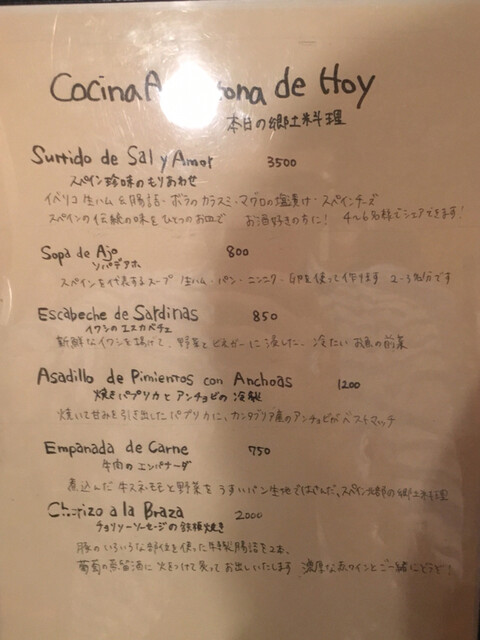 Cocina de Hoy
本日の郷土料理
Surtido de Sal y Amor 3500
スペイン珍味のもりあわせ
イベリコ生ハム & 腸詰・ボラのカラスミ・マグロの塩漬け・スペインチーズ
スペインの伝統の味をひとつのお皿で お酒好きの方に! 4~6名様でシェアできます!
Sopa de Ajo 800
ソパデアホ
スペインを代表するスープ 生ハム・パン・ニンニク・卵を使って作ります 2-3名分です
Escabeche de Sardinas 850
イワシのエスカベチェ
新鮮なイワシを揚げて、野菜とビネガーに浸した、冷たいお魚の前菜
Asadillo de Pimientos con Anchoas 1200
焼きパプリカとアンチョビの冷製
焼いて甘みを引き出したパプリカに、カンタブリア産のアンチョビがベストマッチ
Empanada de Carne 750
牛肉のエンパナーダ
煮込んだ牛スネ・モモと野菜をうすいパン生地で包んだ、スペイン北部の郷土料理
Chorizo a la Braza 2000
チョリソーソーセージの鉄板焼き
豚のいろいろな部位を使った 腸詰を2本、
葡萄の蒸留酒に火をつけて炙ってお出しいたします 濃厚な赤ワインとご一緒にどうぞ!